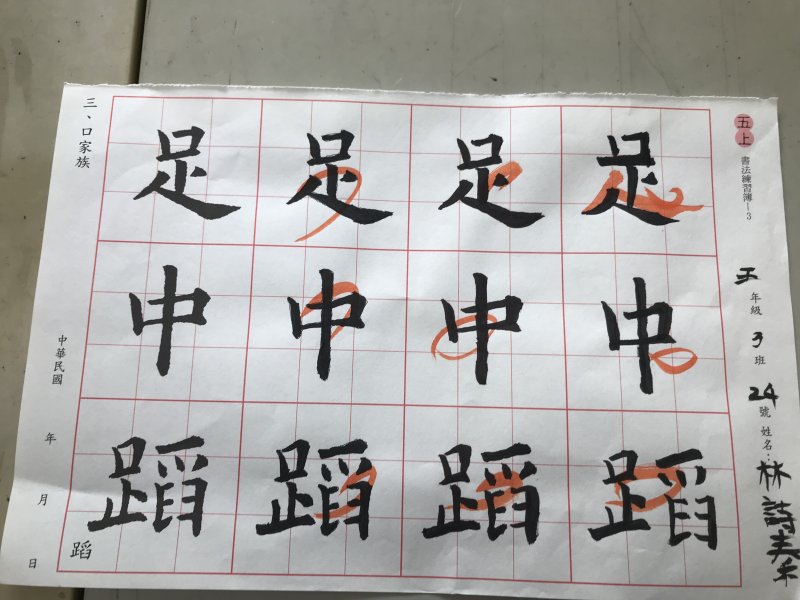 五上 書法練習簿-3
五年級 3班 24號 姓名:林詩
足 足 足 足
中 中 中 中
蹈 蹈 蹈 蹈
三、口家族
蹈
中華民國 年 月 日